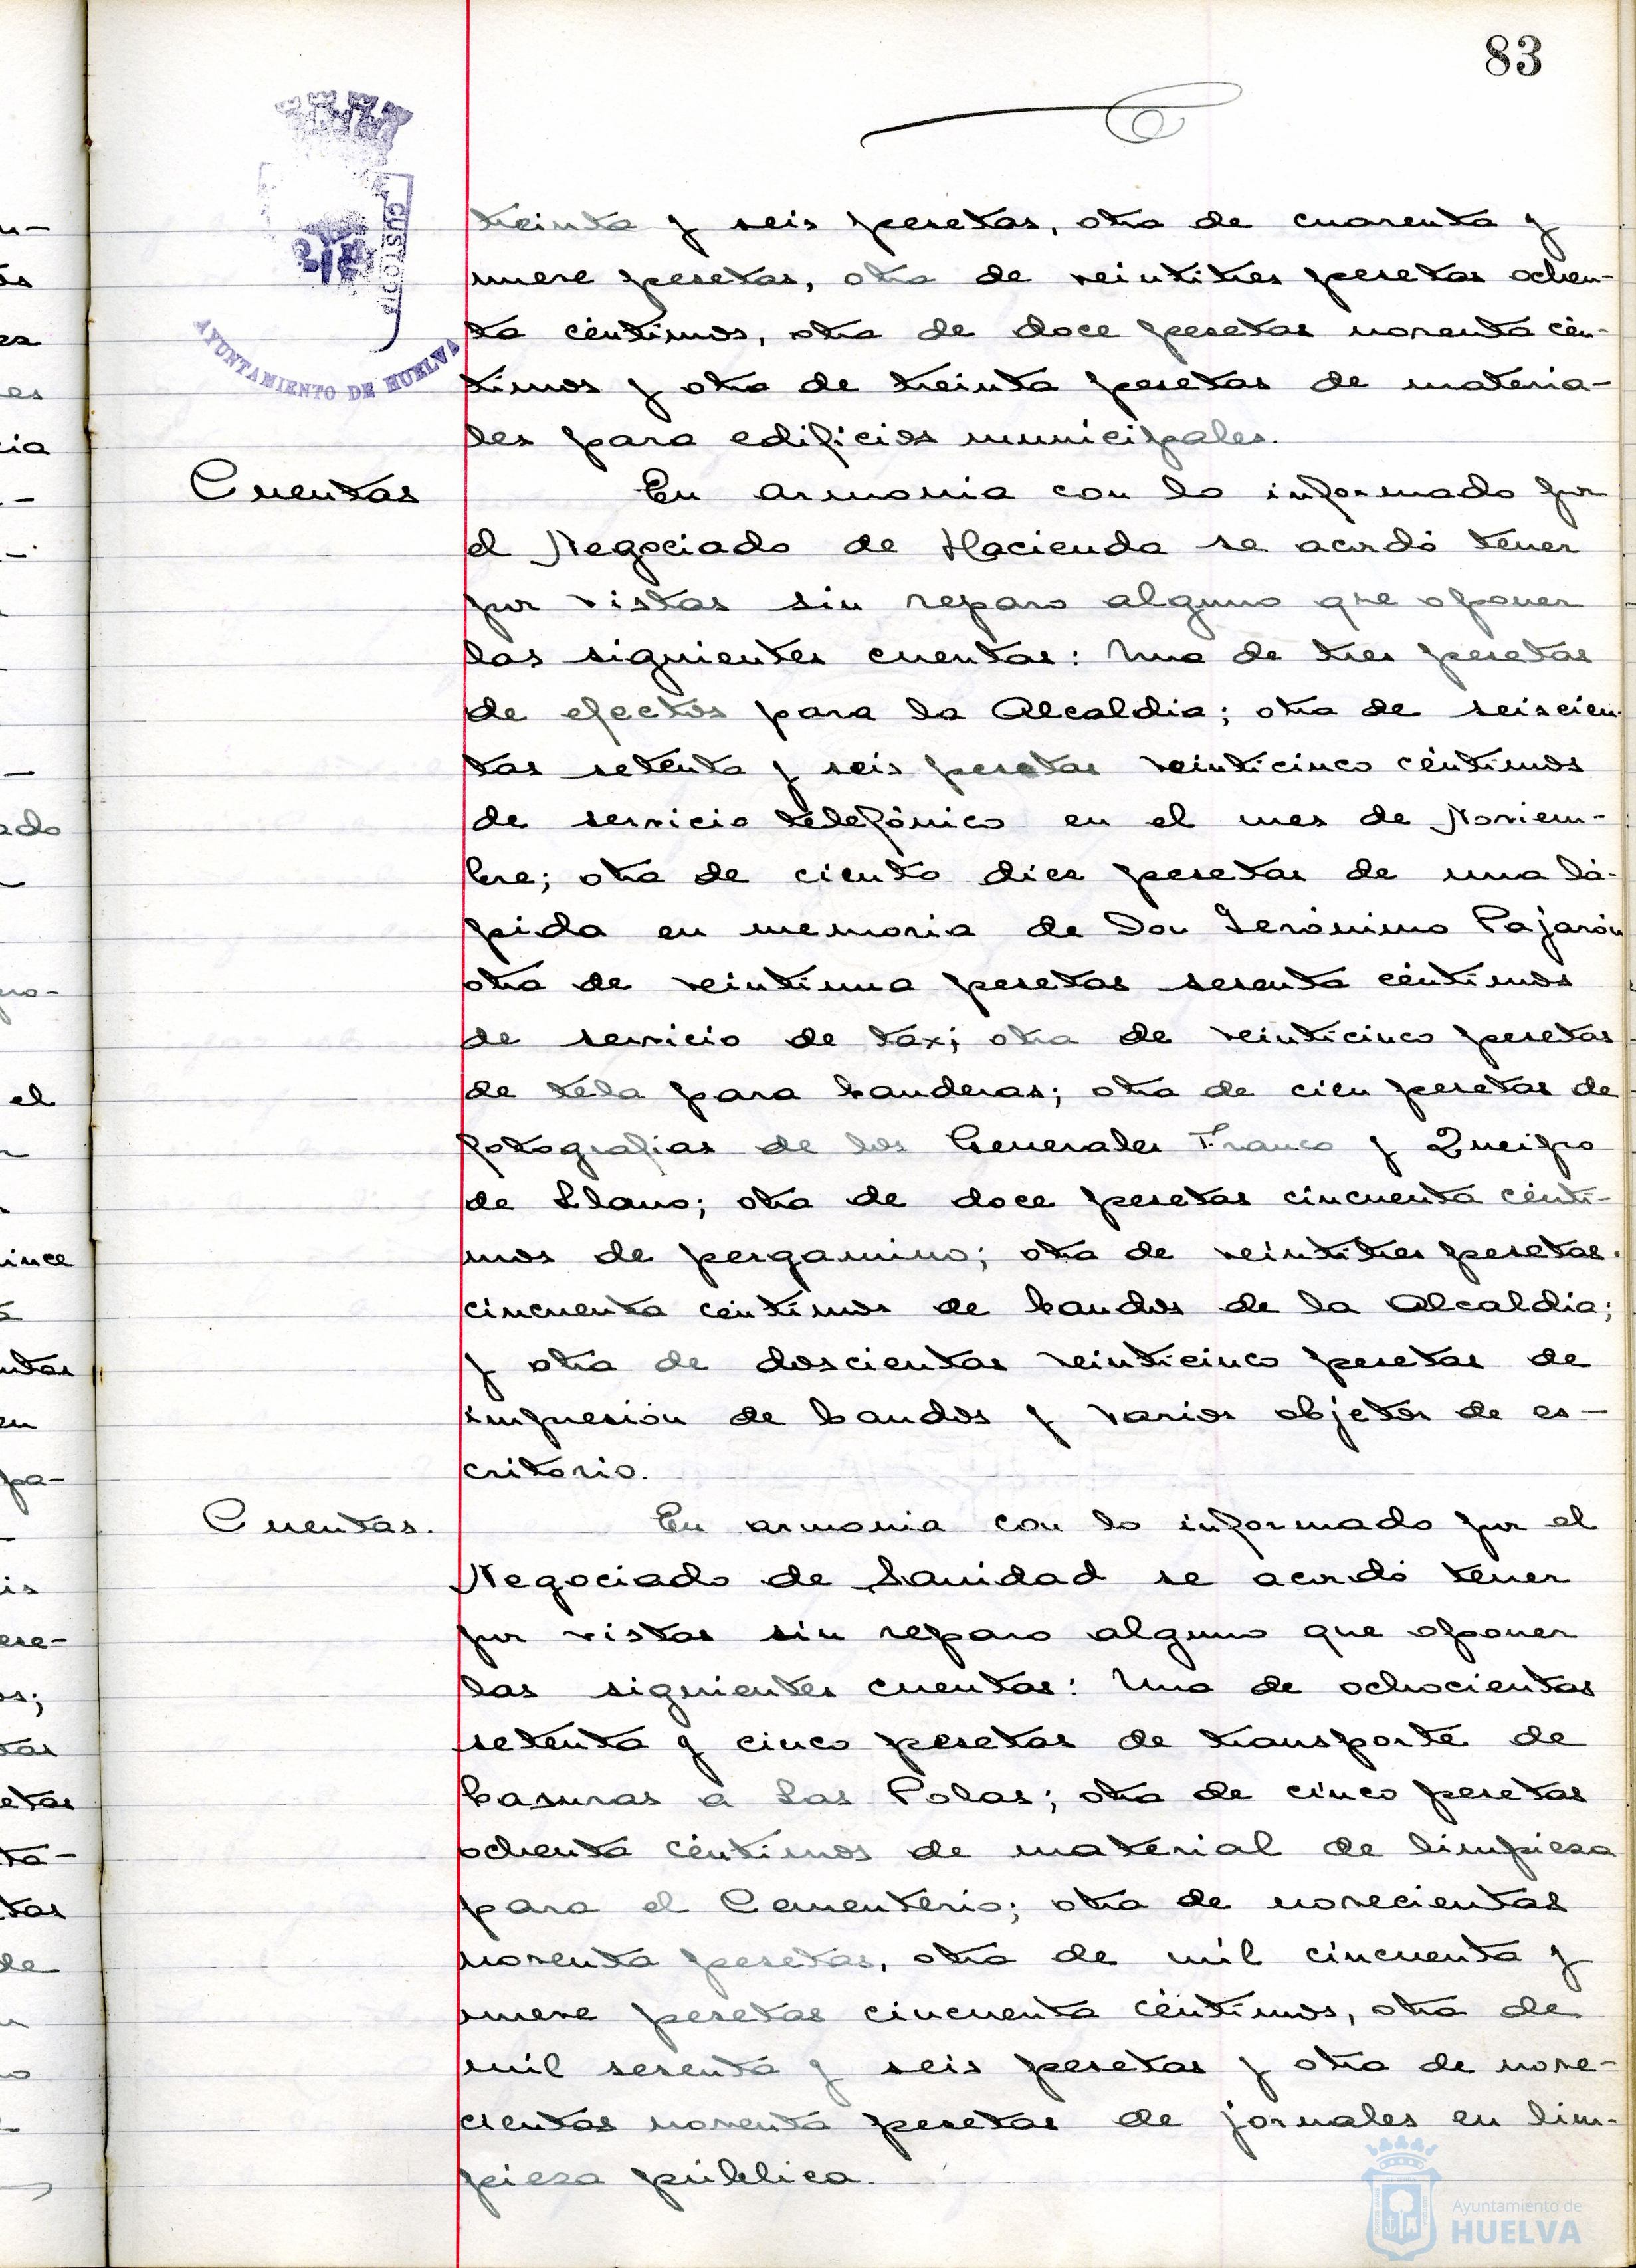 83
CUSTODIT
AYUNTAMIENTO DE HUELVA
treinta y seis pesetas, otra de cuarenta y
nueve pesetas, otra de veintitres pesetas ochen-
ta céntimos, otra de doce pesetas noventa cén-
timos y otra de treinta pesetas de materia-
les para edificios municipales.
Cuentas
En armonia con lo informado por
el Negociado de Hacienda se acordó tener
por vistas sin reparo alguno que oponer
las siguientes cuentas: Una de tres pesetas
de efectos para la Alcaldia; otra de seiscien-
tas setenta y seis pesetas veinticinco céntimos
de servicio telefónico en el mes de Noviem-
bre; otra de ciento diez pesetas de una lá-
pida en memoria de Don Jerónimo Pajarón
otra de veintiuna pesetas sesenta céntimos
de servicio de taxi; otra de veinticinco pesetas
de tela para banderas; otra de cien pesetas de
fotografias de los Generales Franco y Queipo
de Llano; otra de doce pesetas cincuenta cénti-
mos de pergamino; otra de veintitres pesetas
cincuenta céntimos de bandos de la Alcaldia;
y otra de doscientas veinticinco pesetas de
impresión de bandos y varios objetos de es-
critorio.
Cuentas.
En armonia con lo informado por el
Negociado de Sanidad se acordó tener
por vistas sin reparo alguno que oponer
las siguientes cuentas: Una de ochocientas
setenta y cinco pesetas de transporte de
basuras a Las Polas; otra de cinco pesetas
ochenta céntimos de material de limpieza
para el Cementerio; otra de novecientas
noventa pesetas, otra de mil cincuenta y
nueve pesetas cincuenta céntimos, otra de
mil sesenta y seis pesetas y otra de nove-
cientas noventa pesetas de jornales en lim-
pieza pública.
Ayuntamiento de
HUELVA